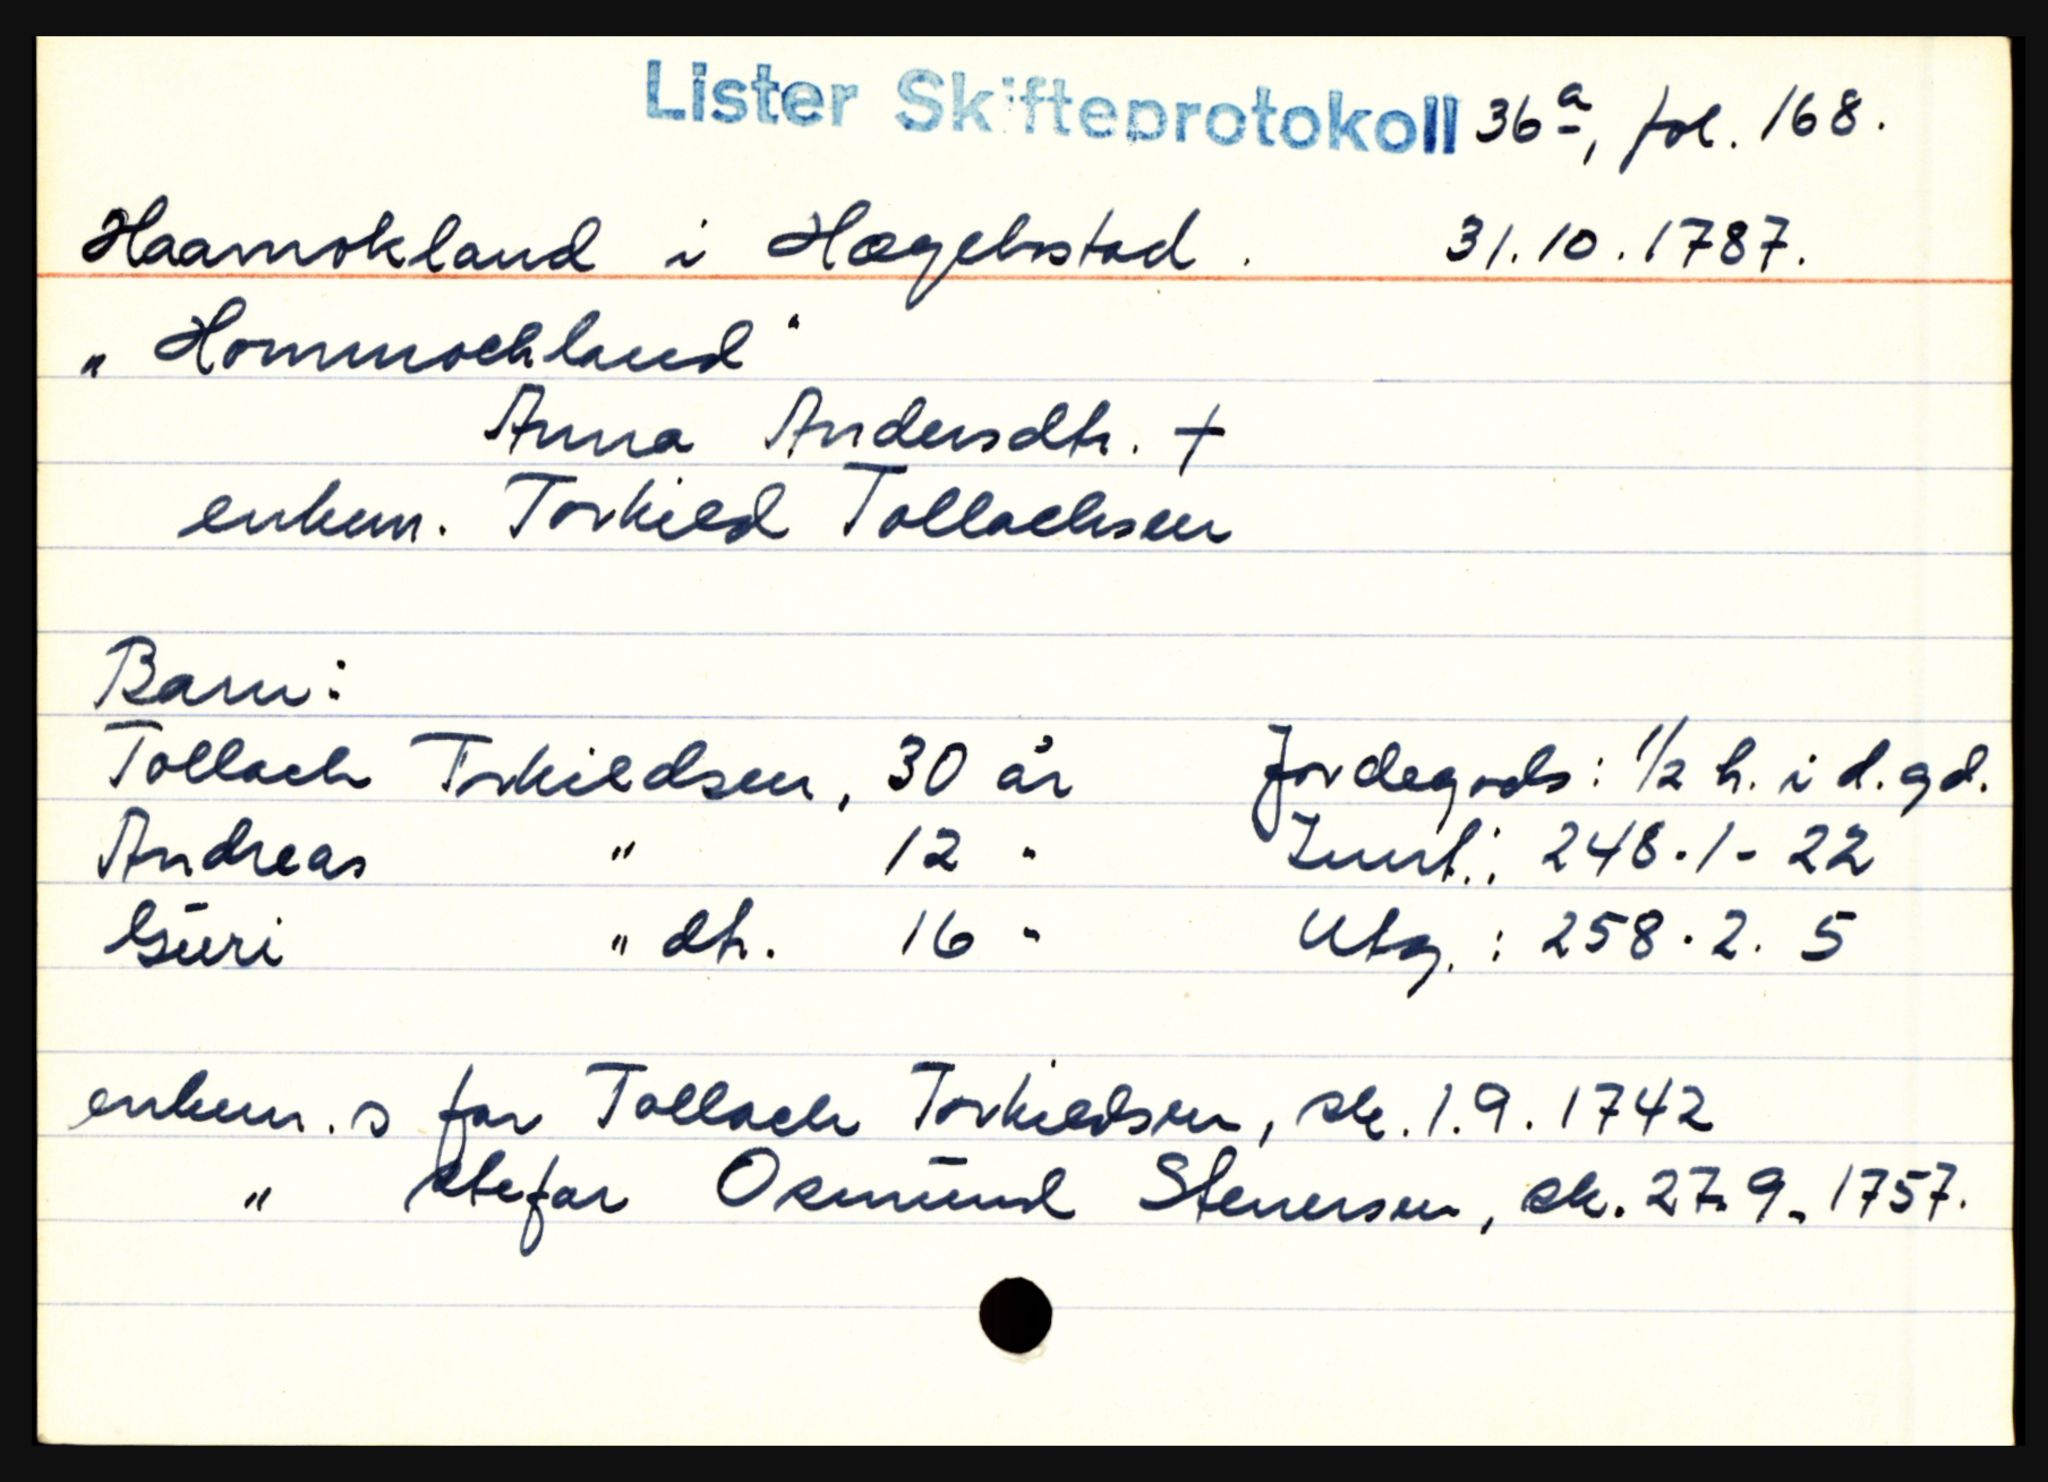 Lister Skifteprotokoll 36a, fol. 168.
Haamokland i Hægebostad. 31.10.1787.
"Hommochland"
Anna Andersdtr. +
enkem. Torkild Tollachsen
Barn:
Tollach Torkildsen, 30 år Jordegods: 1/2 h. i d. gd.
Andreas " 12 " Innt.: 248-1-22
Gūri " dtr. 16 " Utg.: 258.2.5
enkem.s far Tollach Torkildsen, sk. 1.9.1742
" stefar Osmūnd Stenersen, sk. 27.9.1757.